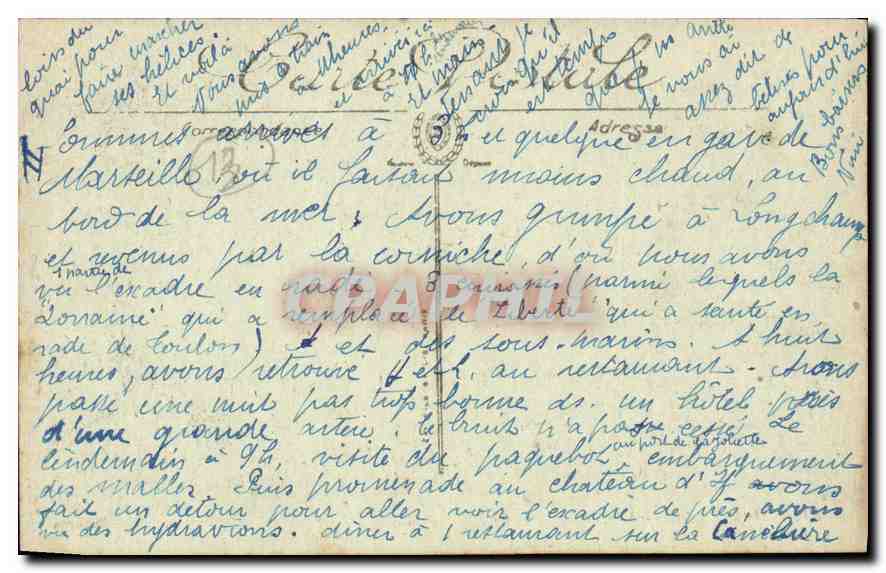 Carte Postale
Correspondance
Adresse
13
Sommes arrivés à 5 et quelque en gare de
Marseille où il faisait moins chaud, au
bord de la mer. Avons grimpé à Longchamp
et revenus par la corniche, d'où nous avons
vu l'escadre en rade 8 cuirassés (parmi lesquels la
"Lorraine" qui a remplacé le "Liberté" qui a sauté en
rade de Toulon) et des sous-marins. A huit
heures, avons retrouvé au restaurant. Avons
passé une nuit pas trop bonne ds. un hôtel près
d'une grande artère. Le bruit n'a pas cessé. Le
lendemain à 9h, visite du paquebot au port de la Joliette embarquement
des malles. Puis promenade au château d'If avons
fait un détour pour aller voir l'escadre de près, avons
vu des hydravions. diner à 1 restaurant sur la Canebière
loin du
quai pour
faire marcher
ses hélices.
Et voilà
Nous avons
pris le train
à heures.
et arrivés ici
à
Et main
tenant je
crois qu'il
est temps
que
je vous ai
assez dit de
bêtises pour
aujourd'hui
Bons baisers
CPAPHIL